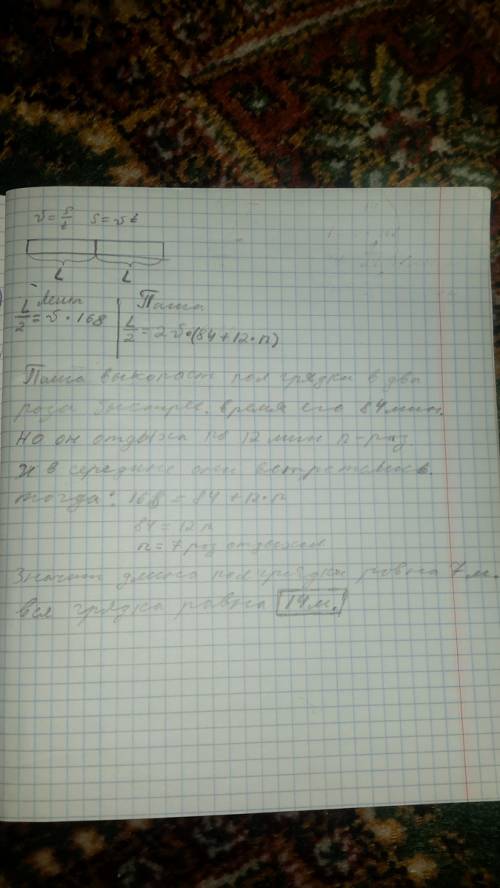 v = s/t   s = v t
L   L
Леша   Паша
L/2 = v · 168   L/2 = 2 v · (84 + 12 · n)
Паша выкопает пол грядки в два
раза быстрее. время его 84 мин.
Но он отдыхал по 12 мин n-раз
и в середине они встретились.
тогда: 168 = 84 + 12 · n
84 = 12 n
n = 7 раз отдыхал
Значит длина пол грядки равна 7 м.
вся грядка равна 14 м.